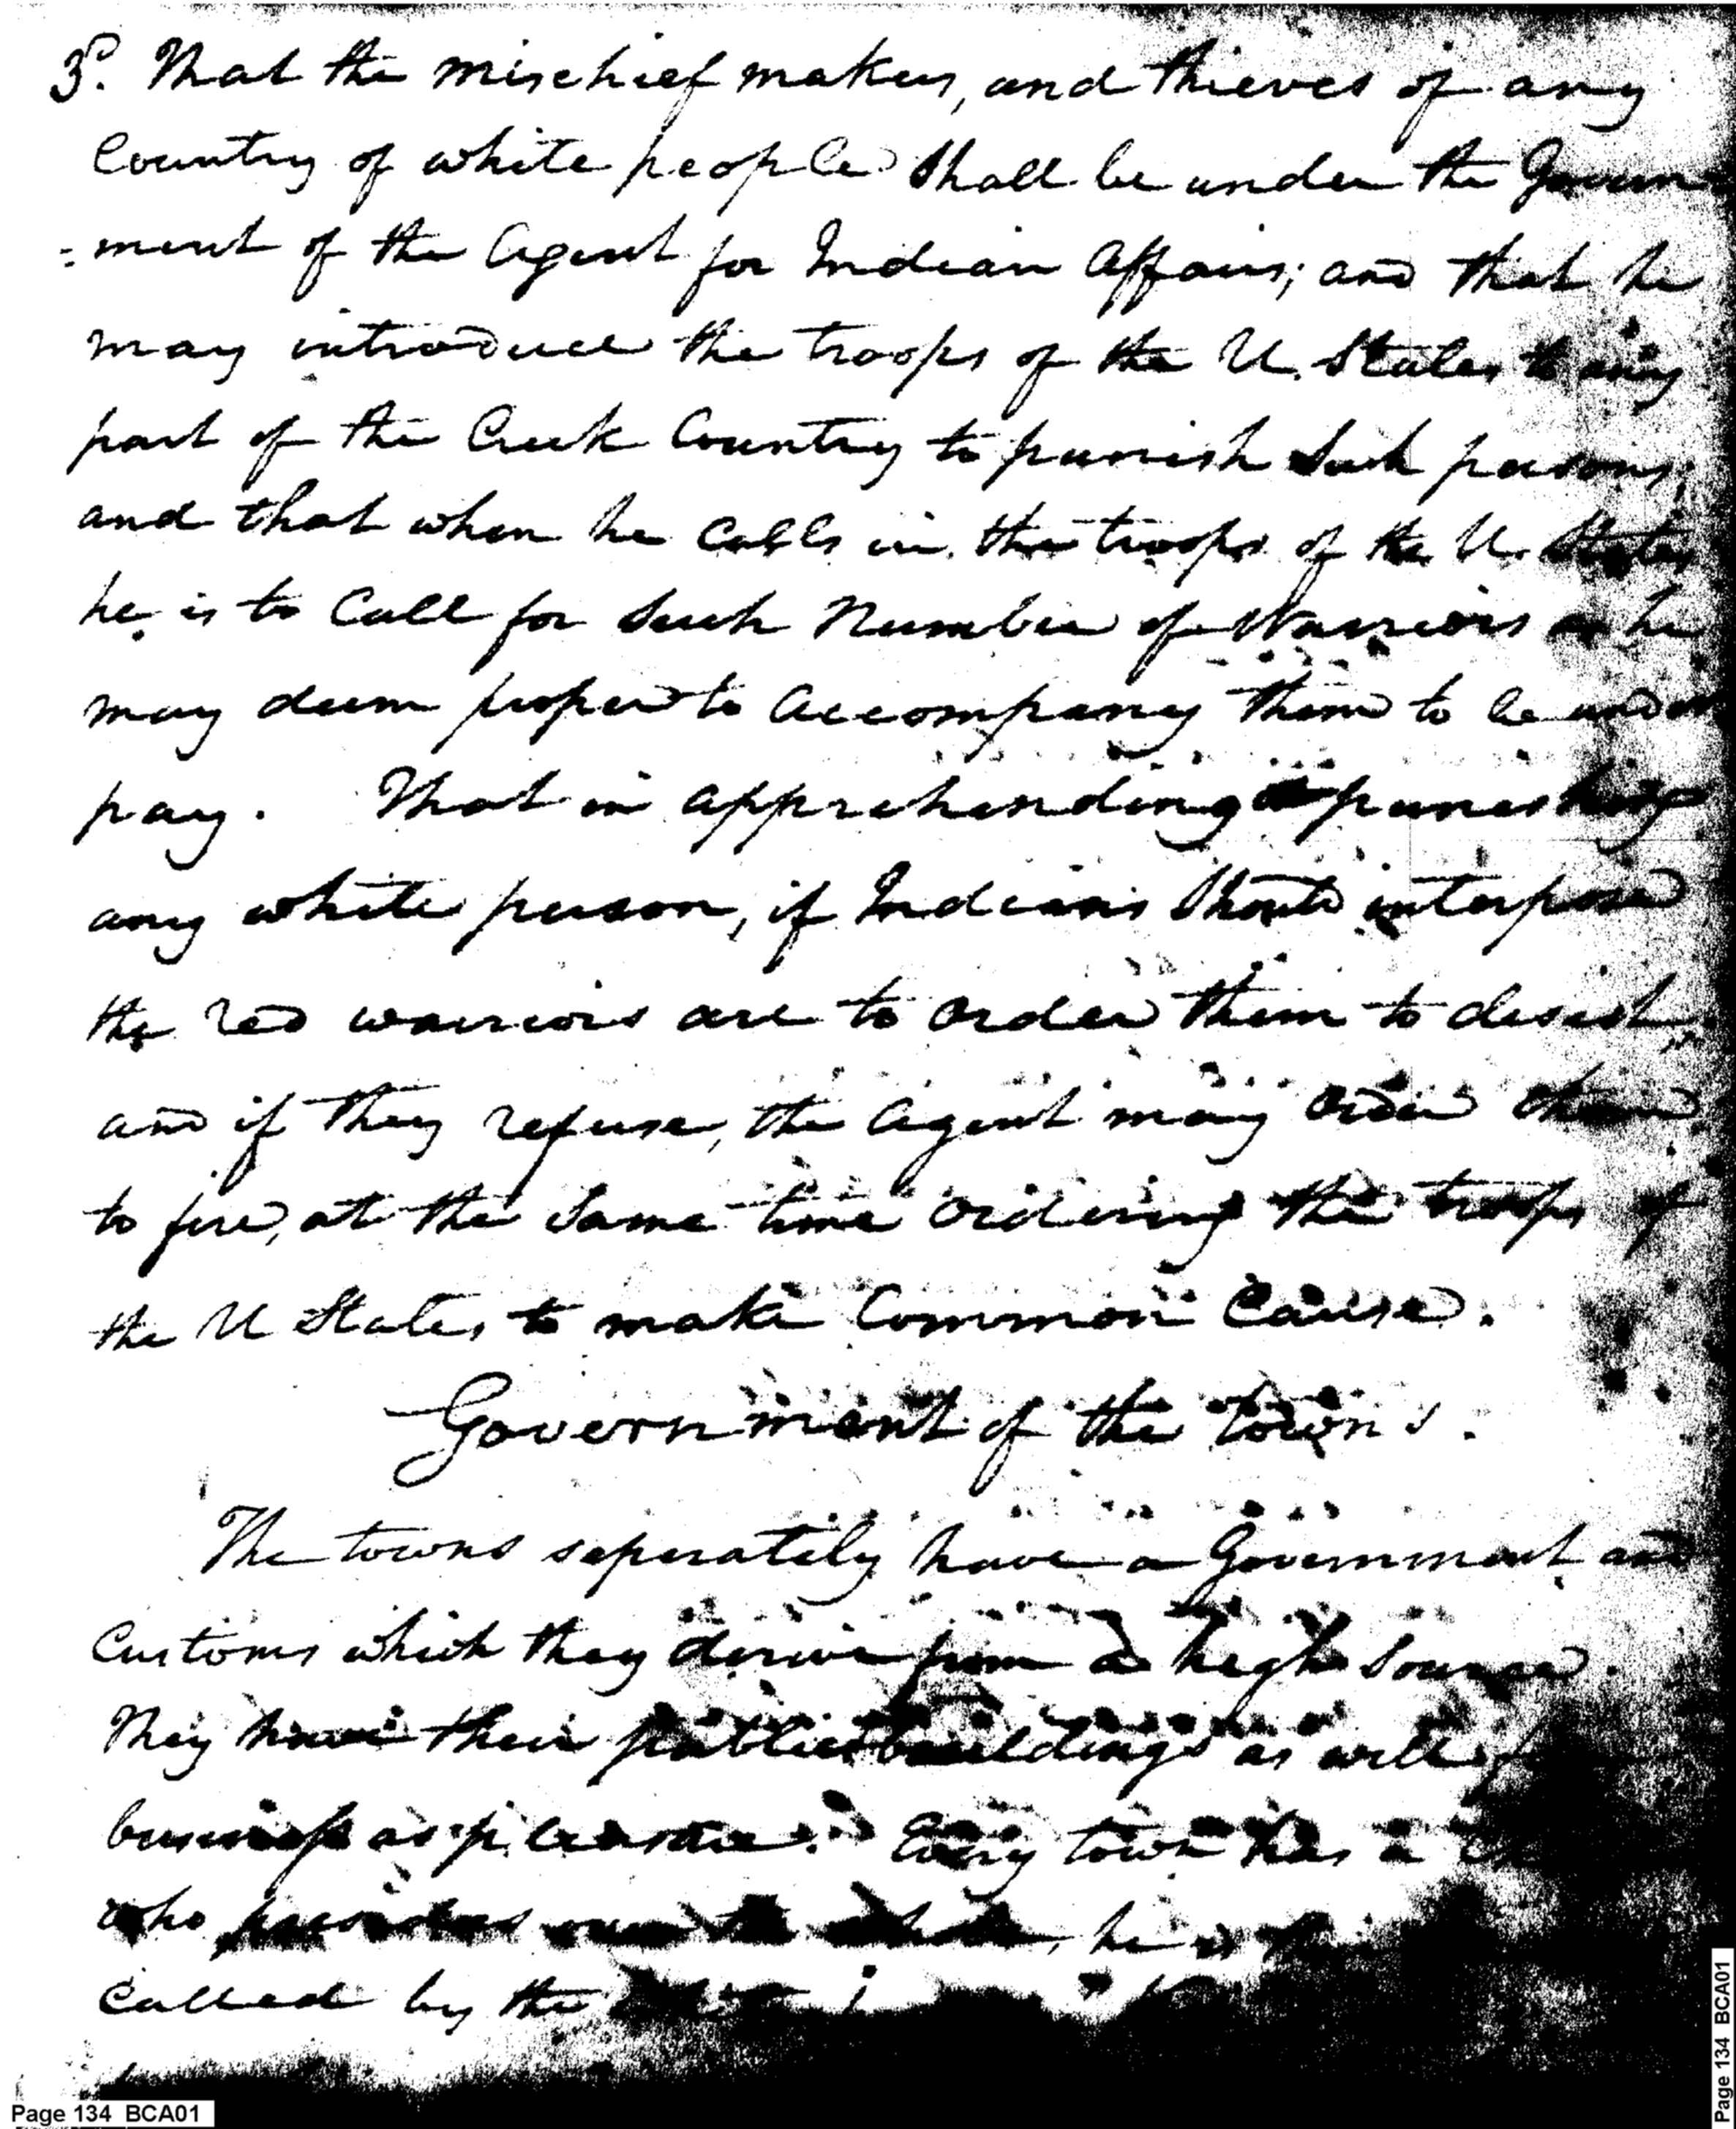 3d. That the mischief makers, and thieves of any
Country of white people shall be under the Govern
=ment of the Agent for Indian Affairs; and that he
may introduce the troops of the U. States to any
part of the Creek Country to punish such persons;
and that when he calls in the troops of the U. States
he is to Call for such Number of Warriors as he
may deem proper to accompany them to be under
pay. That in apprehending or punishing
any white person, if Indians should interpose
the red warriors are to order them to desist,
and if they refuse, the agent may order them
to fire, at the same time ordering the troops of
the U States to make Common Cause.
Government of the towns.
The towns seperately have a Government and
Customs which they derive from a high source.
They have their public buildings as well
business as pleasure. Every town has a
who presides over the whole, he is
Called by the
Page 134 BCA01
Page 134 BCA01